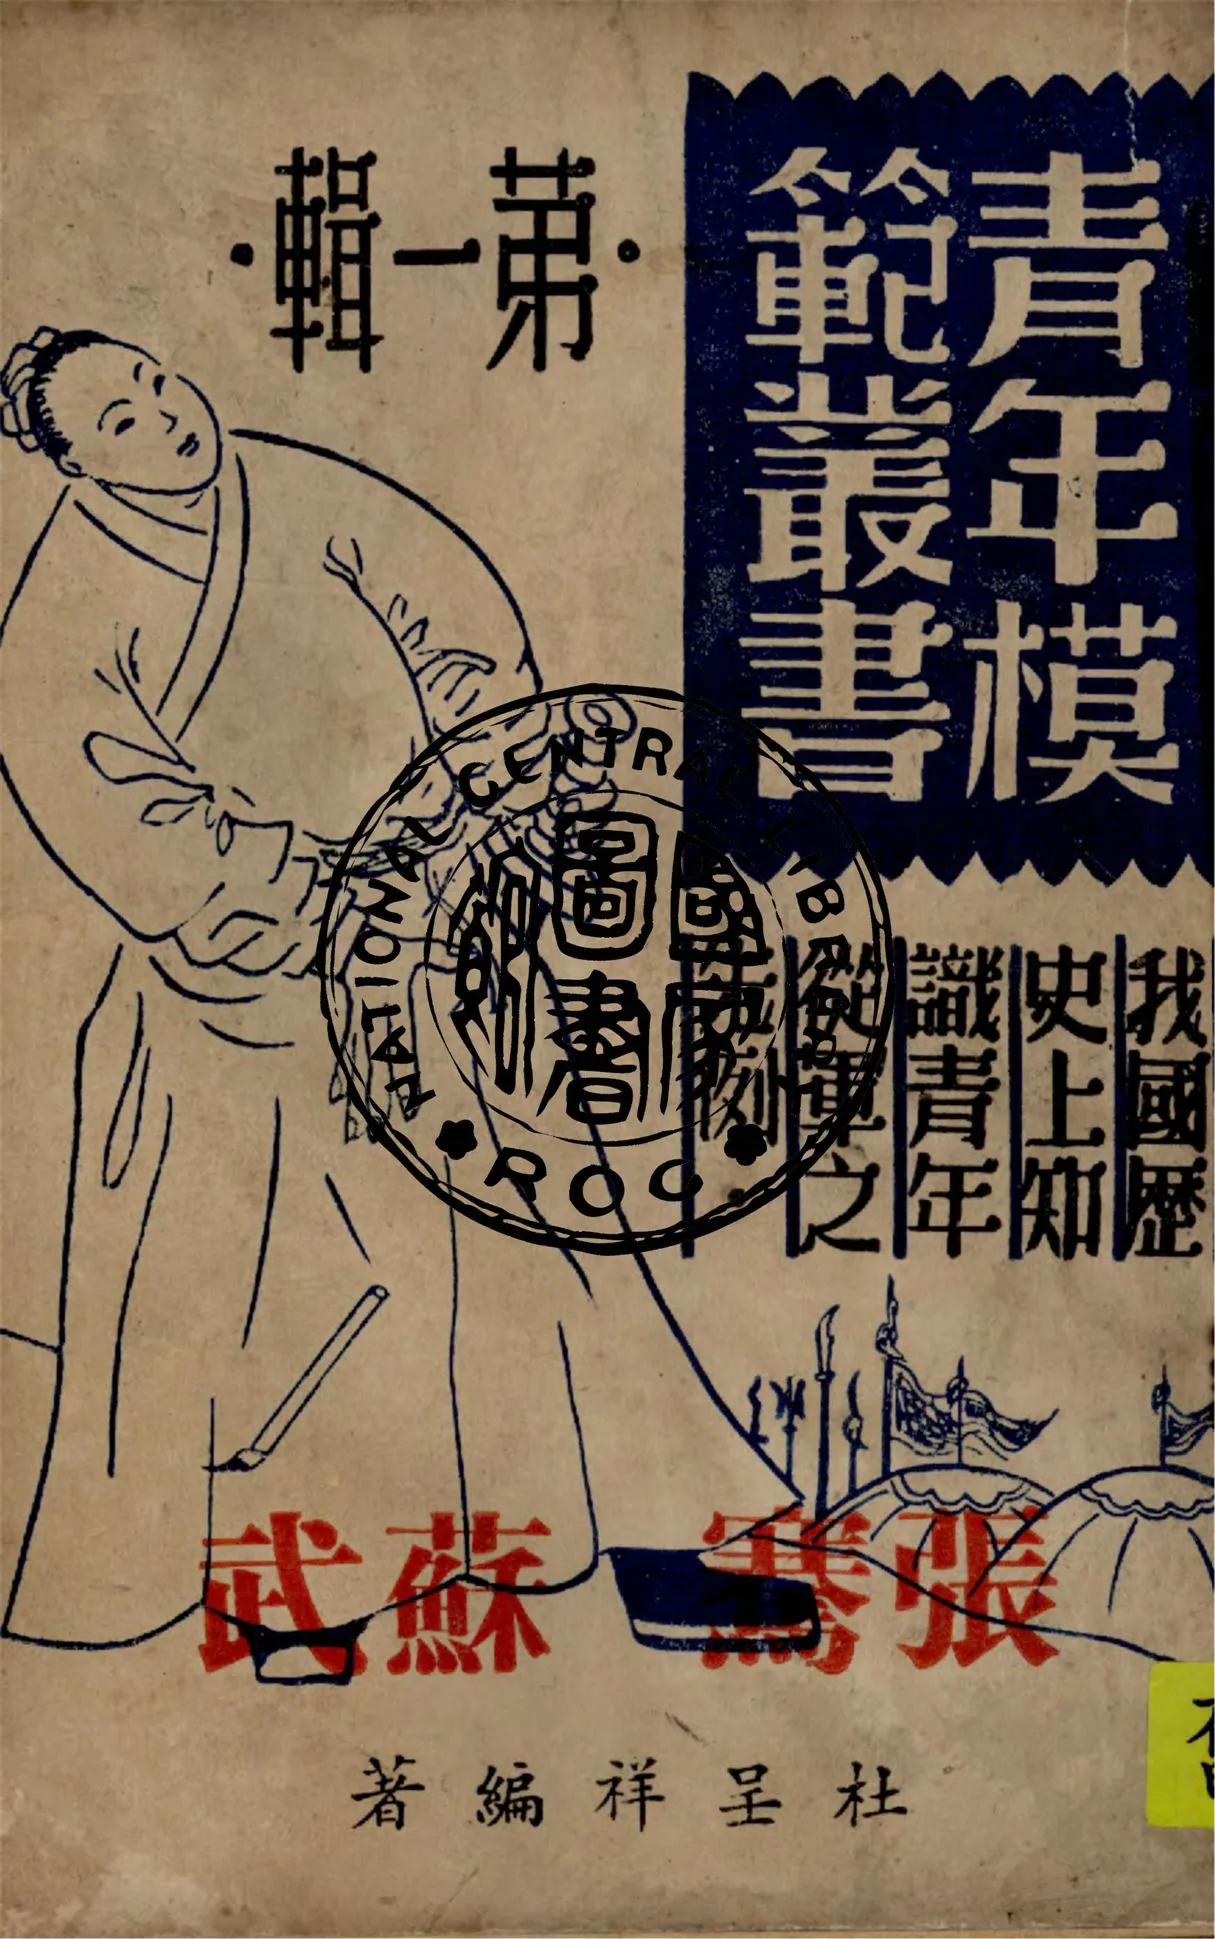 青年模
範叢書
·苐一輯·
我國歷
史上知
識青年
從軍之
例
張騫 蘇武
杜呈祥編著
NATIONAL CENTRAL LIBRARY
國家
圖書
館
ROC